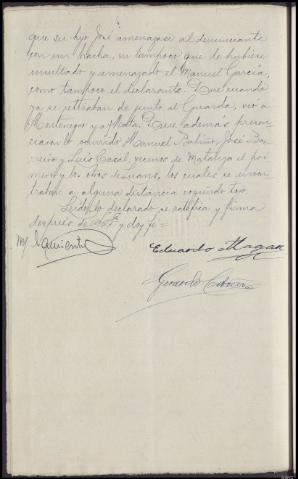 que su hijo José amenazase al denunciante
con un hacha, ni tampoco que le hubiere
insultado y amenazado el Manuel García,
como tampoco el declarante. Que cuando
ya se retiraban de junto al Guarda, vió a
Montenegro y a Que además presen
ciaron lo ocurrido Manuel Batiño, José Bo
y Luis Casal, vecinos de Matalega el pri
mero y los otros de los cuales se encon
traban a alguna distancia cogiendo tojo.
Leido lo declarado se ratifica y firma
después de S.Sª y doy fe =
Eduardo Magan
Gerardo